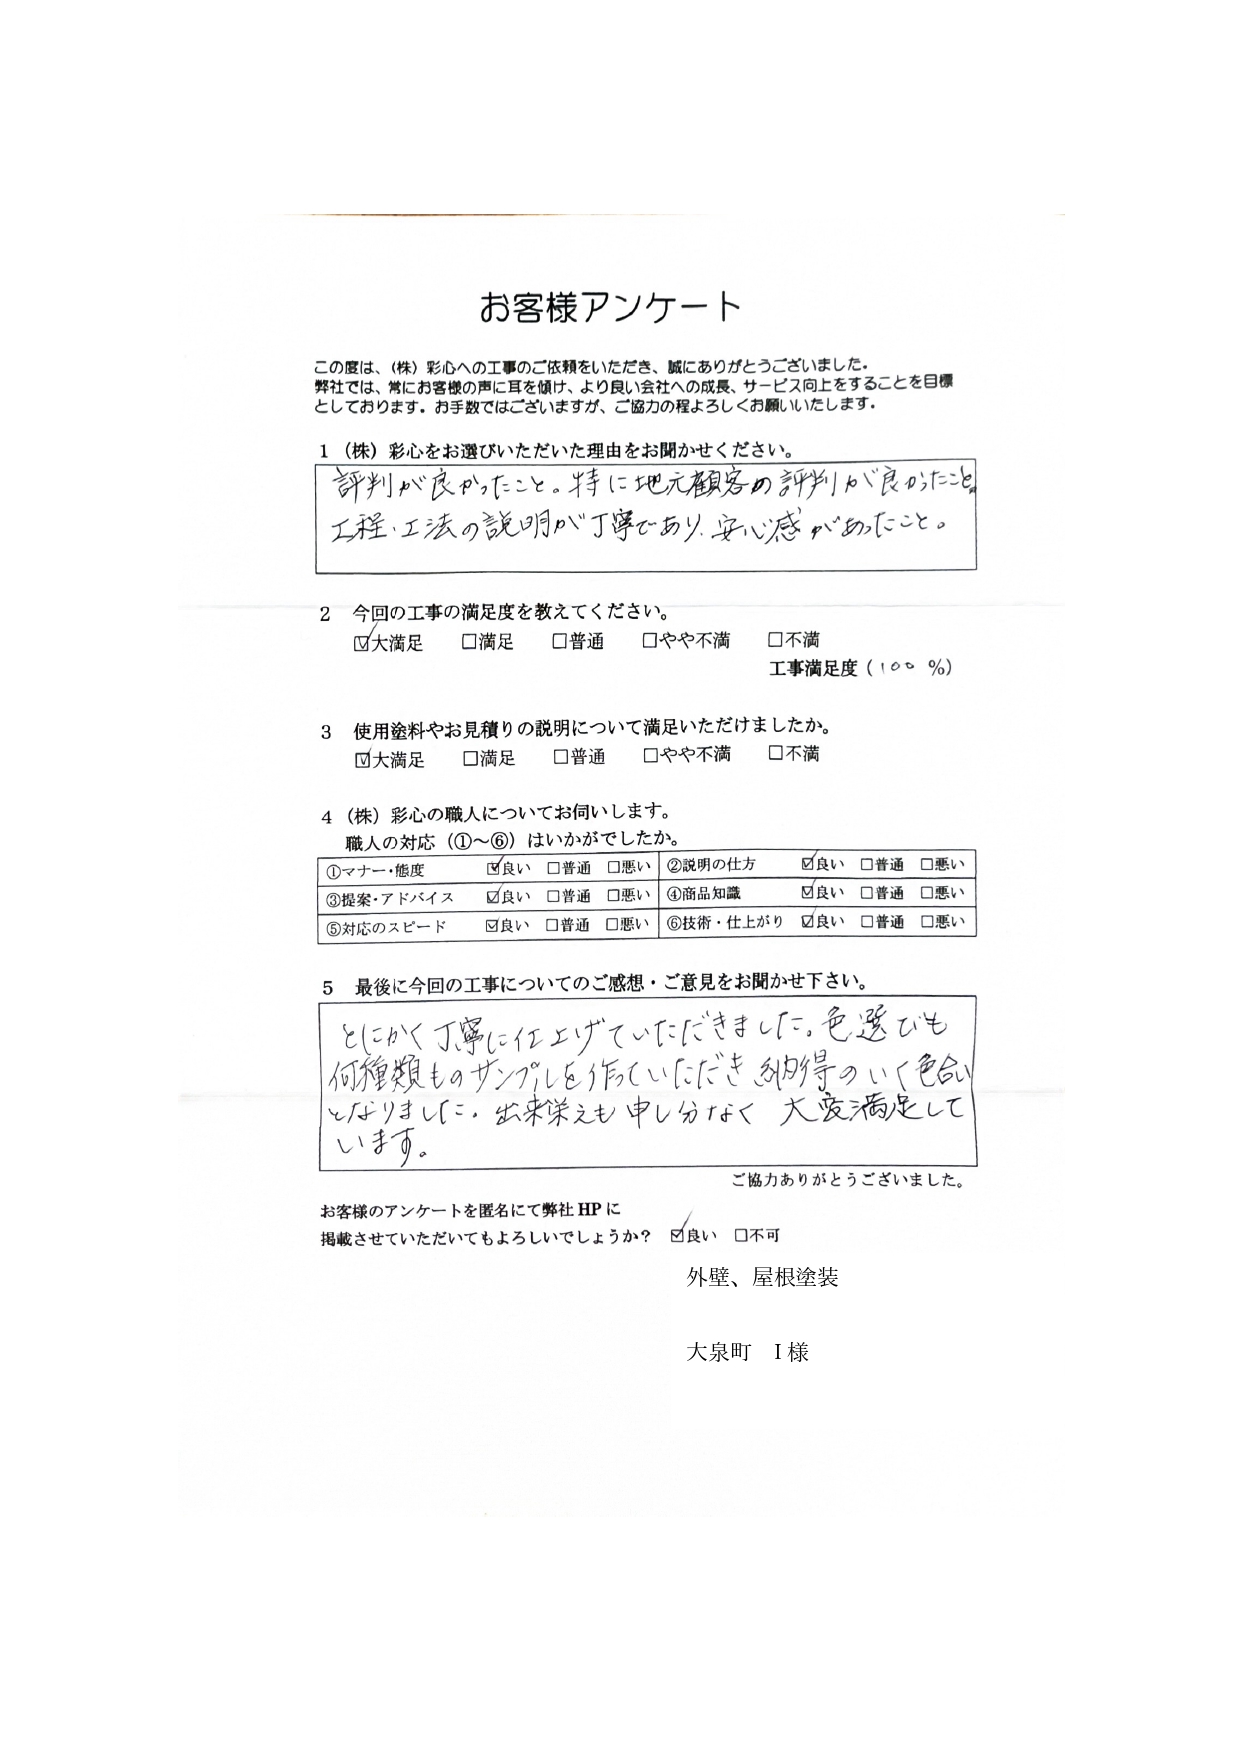 お客様アンケート
この度は、（株）彩心への工事のご依頼をいただき、誠にありがとうございました。
弊社では、常にお客様の声に耳を傾け、より良い会社への成長、サービス向上をすることを目標
としております。お手数ではございますが、ご協力の程よろしくお願いいたします。
1 （株）彩心をお選びいただいた理由をお聞かせください。
評判が良かったこと。特に地元顧客の評判が良かったこと。
工程・工法の説明が丁寧であり、安心感があったこと。
2 今回の工事の満足度を教えてください。
☑大満足 □満足 □普通 □やや不満 □不満
工事満足度（100 %）
3 使用塗料やお見積りの説明について満足いただけましたか。
☑大満足 □満足 □普通 □やや不満 □不満
4 （株）彩心の職人についてお伺いします。
職人の対応（①～⑥）はいかがでしたか。
①マナー・態度 ☑良い □普通 □悪い ②説明の仕方 ☑良い □普通 □悪い
③提案・アドバイス ☑良い □普通 □悪い ④商品知識 ☑良い □普通 □悪い
⑤対応のスピード ☑良い □普通 □悪い ⑥技術・仕上がり ☑良い □普通 □悪い
5 最後に今回の工事についてのご感想・ご意見をお聞かせ下さい。
とにかく丁寧に仕上げていただきました。色選びも
何種類ものサンプルを作っていただき納得のいく色合い
となりました。出来栄えも申し分なく 大変満足して
います。
ご協力ありがとうございました。
お客様のアンケートを匿名にて弊社 HP に
掲載させていただいてもよろしいでしょうか？ ☑良い □不可
外壁、屋根塗装
大泉町 I 様